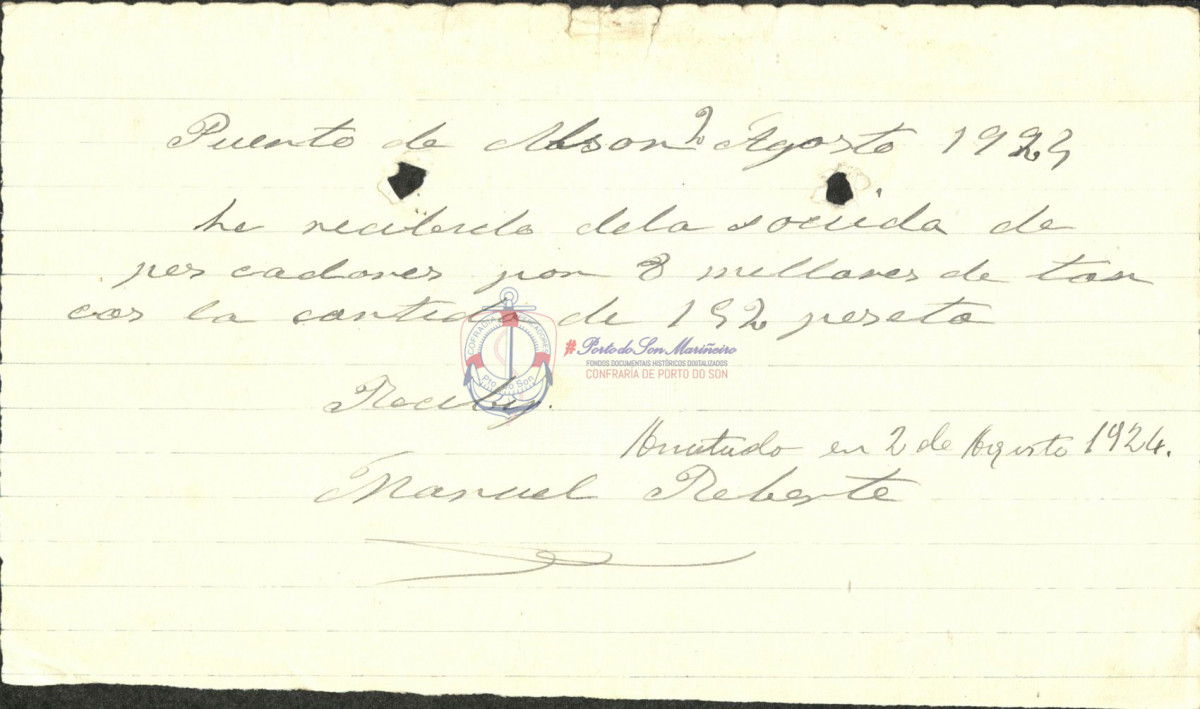 Puerto de Alson 2 Agosto 1924
he recibido dela socida de
pes cadores por 8 millares de tan
cos la cantida de 192 peseta
COFRADIA PESCADORES
Pto. do Son
#Porto do Son Mariñeiro
FONDOS DOCUMENTAIS HISTÓRICOS DIXITALIZADOS
CONFRARÍA DE PORTO DO SON
Reciby.
en 2 de Agosto 1924.
Manuel Reberte